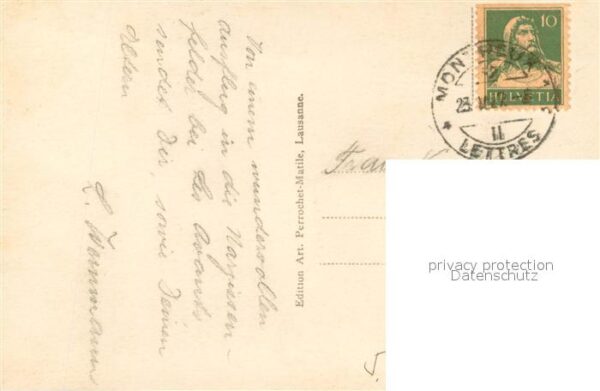 Von einem wundervollen
Ausflug in die Narzissen-
felder bei Les Avants
sendet Dir, sowie Deinen
Eltern
L. Weinmann
Edition Art. Perrochet-Matile, Lausanne.
10
HELVETIA
MONTREUX
II
LETTRES
privacy protection
Datenschutz